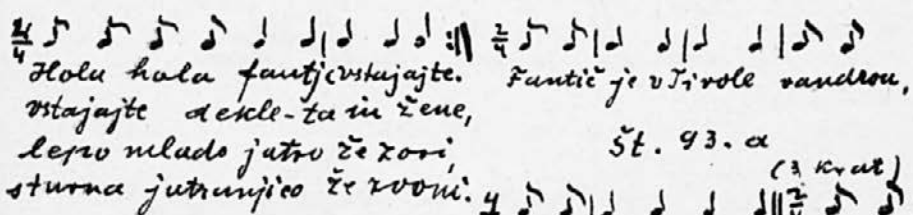 Hola hola fantje vstajajte.
vstajajte dekle-ta in žene,
lepo mlado jutro že zori,
sturna jutranjico že zvoni.
Fantič je v Tirole vandrou,
Št. 93. a
(3 krat)